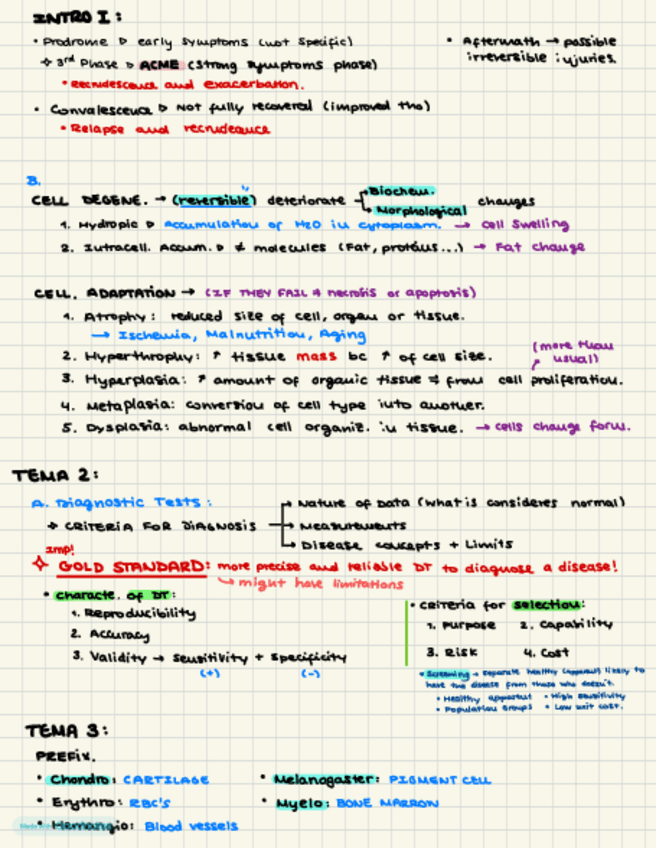 INTRO I:
• Prodrome ▷ early symptoms (not specific)
✧ 3rd Phase ▷ ACME (strong symptoms phase)
• Recrudescence and exacerbation.
• Convalescence ▷ Not fully recovered (improved tho)
• Relapse and recrudeance
• Aftermath → possible
irreversible injuries.
B.
CELL DEGENE. → (reversible) deteriorate
Biochem.
Morphological
changes
1. Hydropic ▷ Accumulation of H2O in cytoplasm. → cell swelling
2. Intracell. Accum. ▷ ≠ molecules (Fat, proteins...) → Fat change
CELL. ADAPTATION → (IF THEY FAIL → necrosis or apoptosis)
1. Atrophy: reduced size of cell, organ or tissue.
→ Ischemia, Malnutrition, Aging
2. Hyperthrophy: ↑ tissue mass bc ↑ of cell size.
(more than
usual)
3. Hyperplasia: ↑ amount of organic tissue from cell proliferation.
4. Metaplasia: conversion of cell type into another.
5. Dysplasia: abnormal cell organiz. in tissue. → cells change form.
TEMA 2:
A. Diagnostic Tests:
→ CRITERIA FOR DIAGNOSIS
→ Nature of Data (what is consideres normal)
→ Measurements
→ Disease concepts + Limits
Imp!
✧ GOLD STANDARD: more precise and reliable DT to diagnose a disease!
→ might have limitations
• characte. of DT:
1. Reproducibility
2. Accuracy
3. Validity → Sensitivity + Specificity
(+) (-)
• criteria for selection:
1. Purpose 2. Capability
3. Risk 4. Cost
• Screening → separate healthy (apparent) likely to
have the disease from those who doesn't.
• Healthy apparent • High sensitivity
• Population Groups • Low unit cost.
TEMA 3:
PREFIX.
• Chondro: CARTILAGE
• Erythro: RBC's
• Hemangio: Blood vessels
• Melanogaster: PIGMENT CELL
• Myelo: BONE MARROW